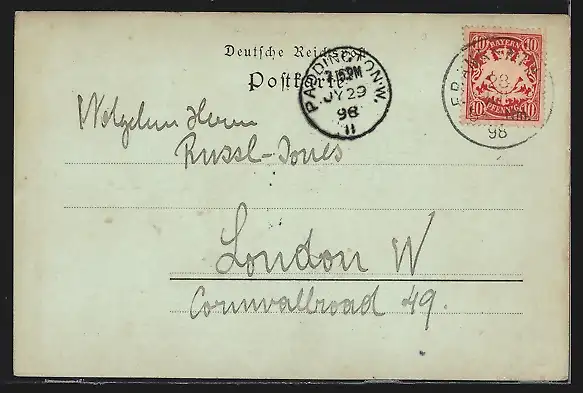 Deutsche Reichspost
Postkarte
PADDINGTON.W.
7.15PM
JY 29
98
11
10 BAYERN 10
10 PFENNIG 10
98
Wolgeborn Herrn
Russl-Jones
London W
Cornwallroad 49.